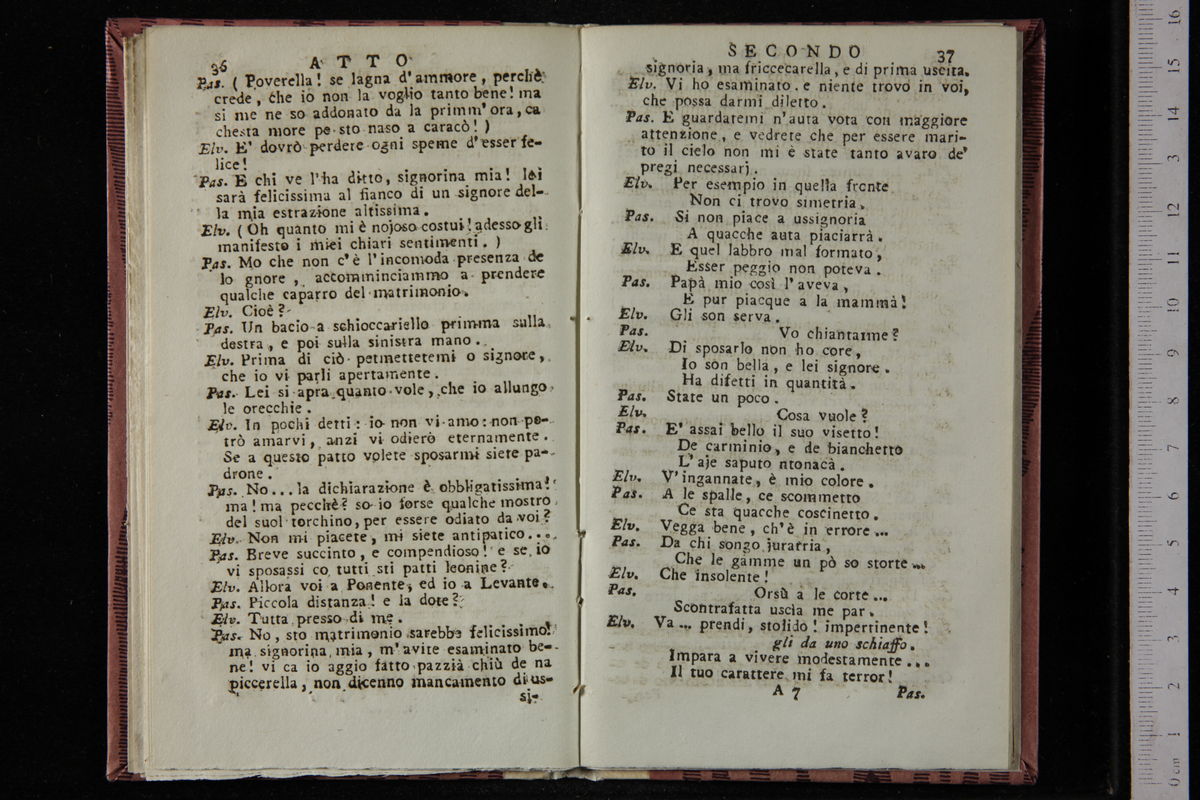 36 ATTO
Pas. ( Poverella! se lagna d'ammore, perchè
crede, che io non la voglio tanto bene! ma
si me ne so addonato da la primm'ora, ca
chesta more pe sto naso a caracò! )
Elv. E' dovrò perdere ogni speme d'esser fe-
lice!
Pas. E chi ve l'ha ditto, signorina mia! lei
sarà felicissima al fianco di un signore del-
la mia estrazione altissima.
Elv. ( Oh quanto mi è nojoso costui! adesso gli
manifesto i miei chiari sentimenti. )
Pas. Mo che non c'è l'incomoda presenza de
lo gnore, accomminciammo a prendere
qualche caparro del matrimonio.
Elv. Cioè?
Pas. Un bacio a schioccariello primma sulla
destra, e poi sulla sinistra mano.
Elv. Prima di ciò permettetemi o signore,
che io vi parli apertamente.
Pas. Lei si apra quanto vole, che io allungo
le orecchie.
Elv. In pochi detti: io non vi amo: non po-
trò amarvi, anzi vi odierò eternamente.
Se a questo patto volete sposarmi siete pa-
drone.
Pas. No... la dichiarazione è obbligatissima!
ma! ma pecchè? so io forse qualche mostro
del suol torchino, per essere odiato da voi?
Elv. Non mi piacete, mi siete antipatico...
Pas. Breve succinto, e compendioso! e se io
vi sposassi co tutti sti patti leonine?
Elv. Allora voi a Ponente, ed io a Levante.
Pas. Piccola distanza! e la dote?
Elv. Tutta presso di me.
Pas. No, sto matrimonio sarebbe felicissimo!
ma signorina mia, m'avite esaminato be-
ne! vi ca io aggio fatto pazzià chiù de na
piccerella, non dicenno mancamento di us-
si-
SECONDO 37
signoria, ma friccecarella, e di prima uscita.
Elv. Vi ho esaminato. e niente trovo in voi,
che possa darmi diletto.
Pas. E guardatemi n'auta vota con maggiore
attenzione, e vedrete che per essere mari-
to il cielo non mi è state tanto avaro de'
pregi necessarj.
Elv. Per esempio in quella frente
Non ci trovo simetria.
Pas. Si non piace a ussignoria
A quacche auta piaciarrà.
Elv. E quel labbro mal formato,
Esser peggio non poteva.
Pas. Papà mio così l'aveva,
E pur piacque a la mammà!
Elv. Gli son serva.
Pas. Vo chiantarme?
Elv. Di sposarlo non ho core,
Io son bella, e lei signore.
Ha difetti in quantità.
Pas. State un poco.
Elv. Cosa vuole?
Pas. E' assai bello il suo visetto!
De carminio, e de bianchetto
L'aje saputo ntonacà.
Elv. V'ingannate, è mio colore.
Pas. A le spalle, ce scommetto
Ce sta quacche coscinetto.
Elv. Vegga bene, ch'è in errore...
Pas. Da chi songo jurarria,
Che le gamme un pò so storte...
Elv. Che insolente!
Pas. Orsù a le corte...
Scontrafatta uscìa me par.
Elv. Va... prendi, stolido! impertinente!
gli da uno schiaffo.
Impara a vivere modestamente...
Il tuo carattere mi fa terror!
A 7 Pas.